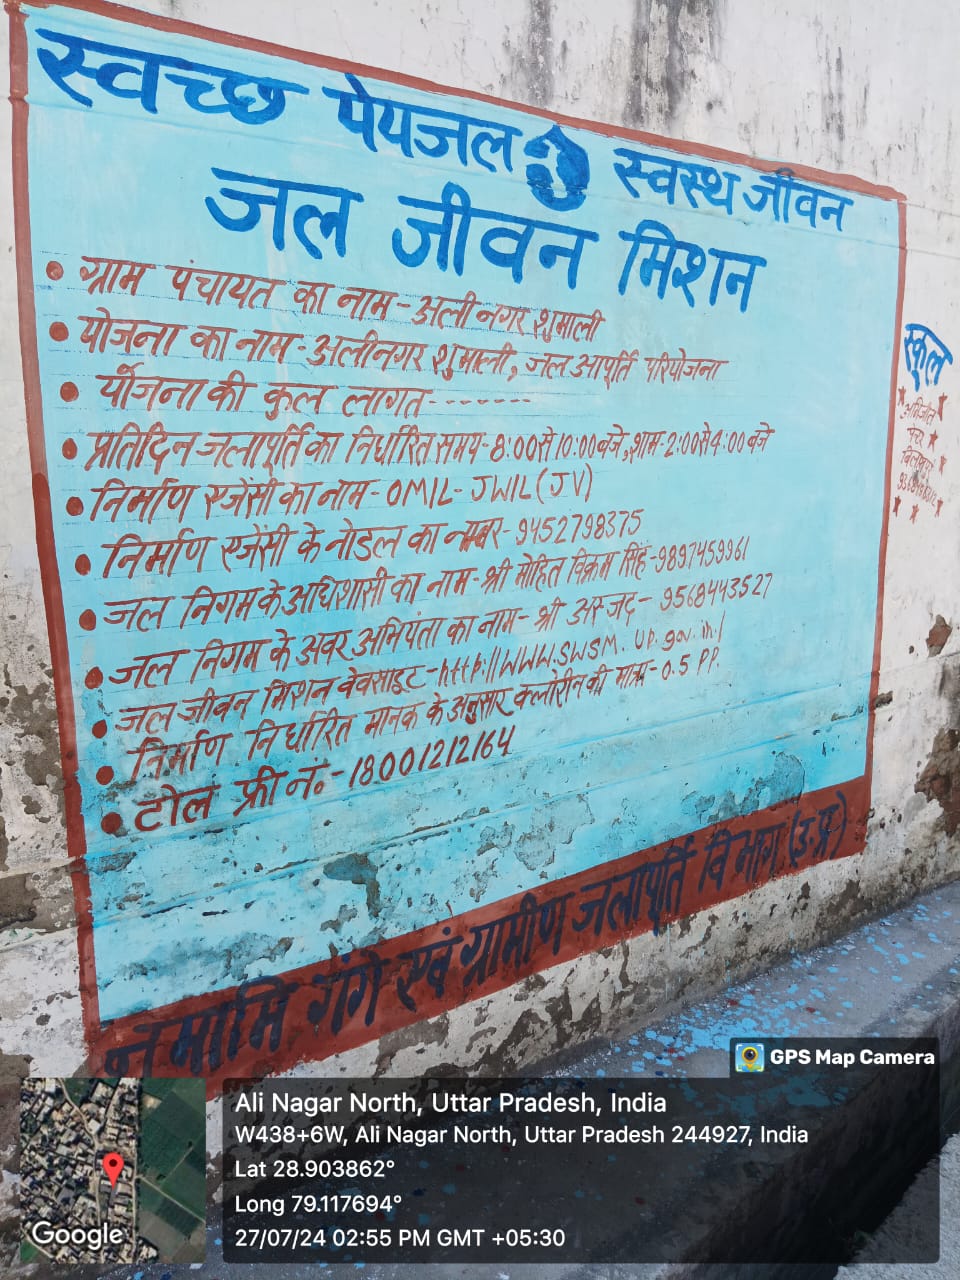 स्वच्छ पेयजल स्वस्थ जीवन
जल जीवन मिशन
• ग्राम पंचायत का नाम - अली नगर शुमाली
• योजना का नाम - अलीनगर शुमाली, जल आपूर्ति परियोजना
• योजना की कुल लागत --------
• प्रतिदिन जलापूर्ति का निर्धारित समय - 8:00 से 10:00 बजे, शाम - 2:00 से 4:00 बजे
• निर्माण एजेंसी का नाम - OMIL - JWIL (JV)
• निर्माण एजेंसी के नोडल का नम्बर - 9452798375
• जल निगम के अधिशासी का नाम - श्री मोहित विक्रम सिंह - 9897459961
• जल निगम के अवर अभियंता का नाम - श्री अस्जद - 9568443527
• जल जीवन मिशन वेबसाइट - http://www.swsm.up.gov.in/
• निर्माण निर्धारित मानक के अनुसार क्लोरीन की मात्रा - 0.5 PP.
• टोल फ्री नं० - 18001212164
नमामि गंगे एवं ग्रामीण जलापूर्ति विभाग (उ.प्र)
स्कूल
GPS Map Camera
Ali Nagar North, Uttar Pradesh, India
W438+6W, Ali Nagar North, Uttar Pradesh 244927, India
Lat 28.903862°
Long 79.117694°
27/07/24 02:55 PM GMT +05:30
Google